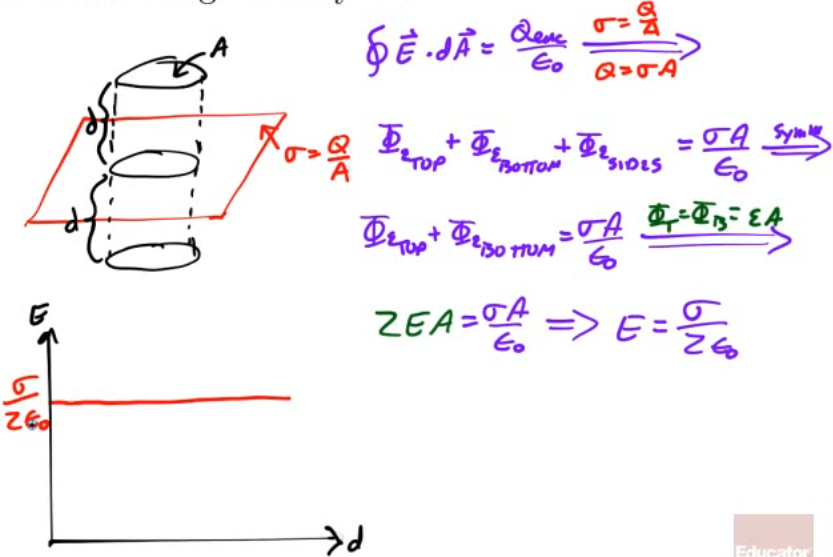 A
d
d
σ = Q/A
∮ E⃗ · dA⃗ = Qenc/ε₀ σ = Q/A Q = σA
Φ_ε TOP + Φ_ε BOTTOM + Φ_ε SIDES = σA/ε₀
Φ_ε TOP + Φ_ε BOTTOM = σA/ε₀ Φ_T = Φ_B = εA
2EA = σA/ε₀ => E = σ/2ε₀
E
σ/2ε₀
d
Educator